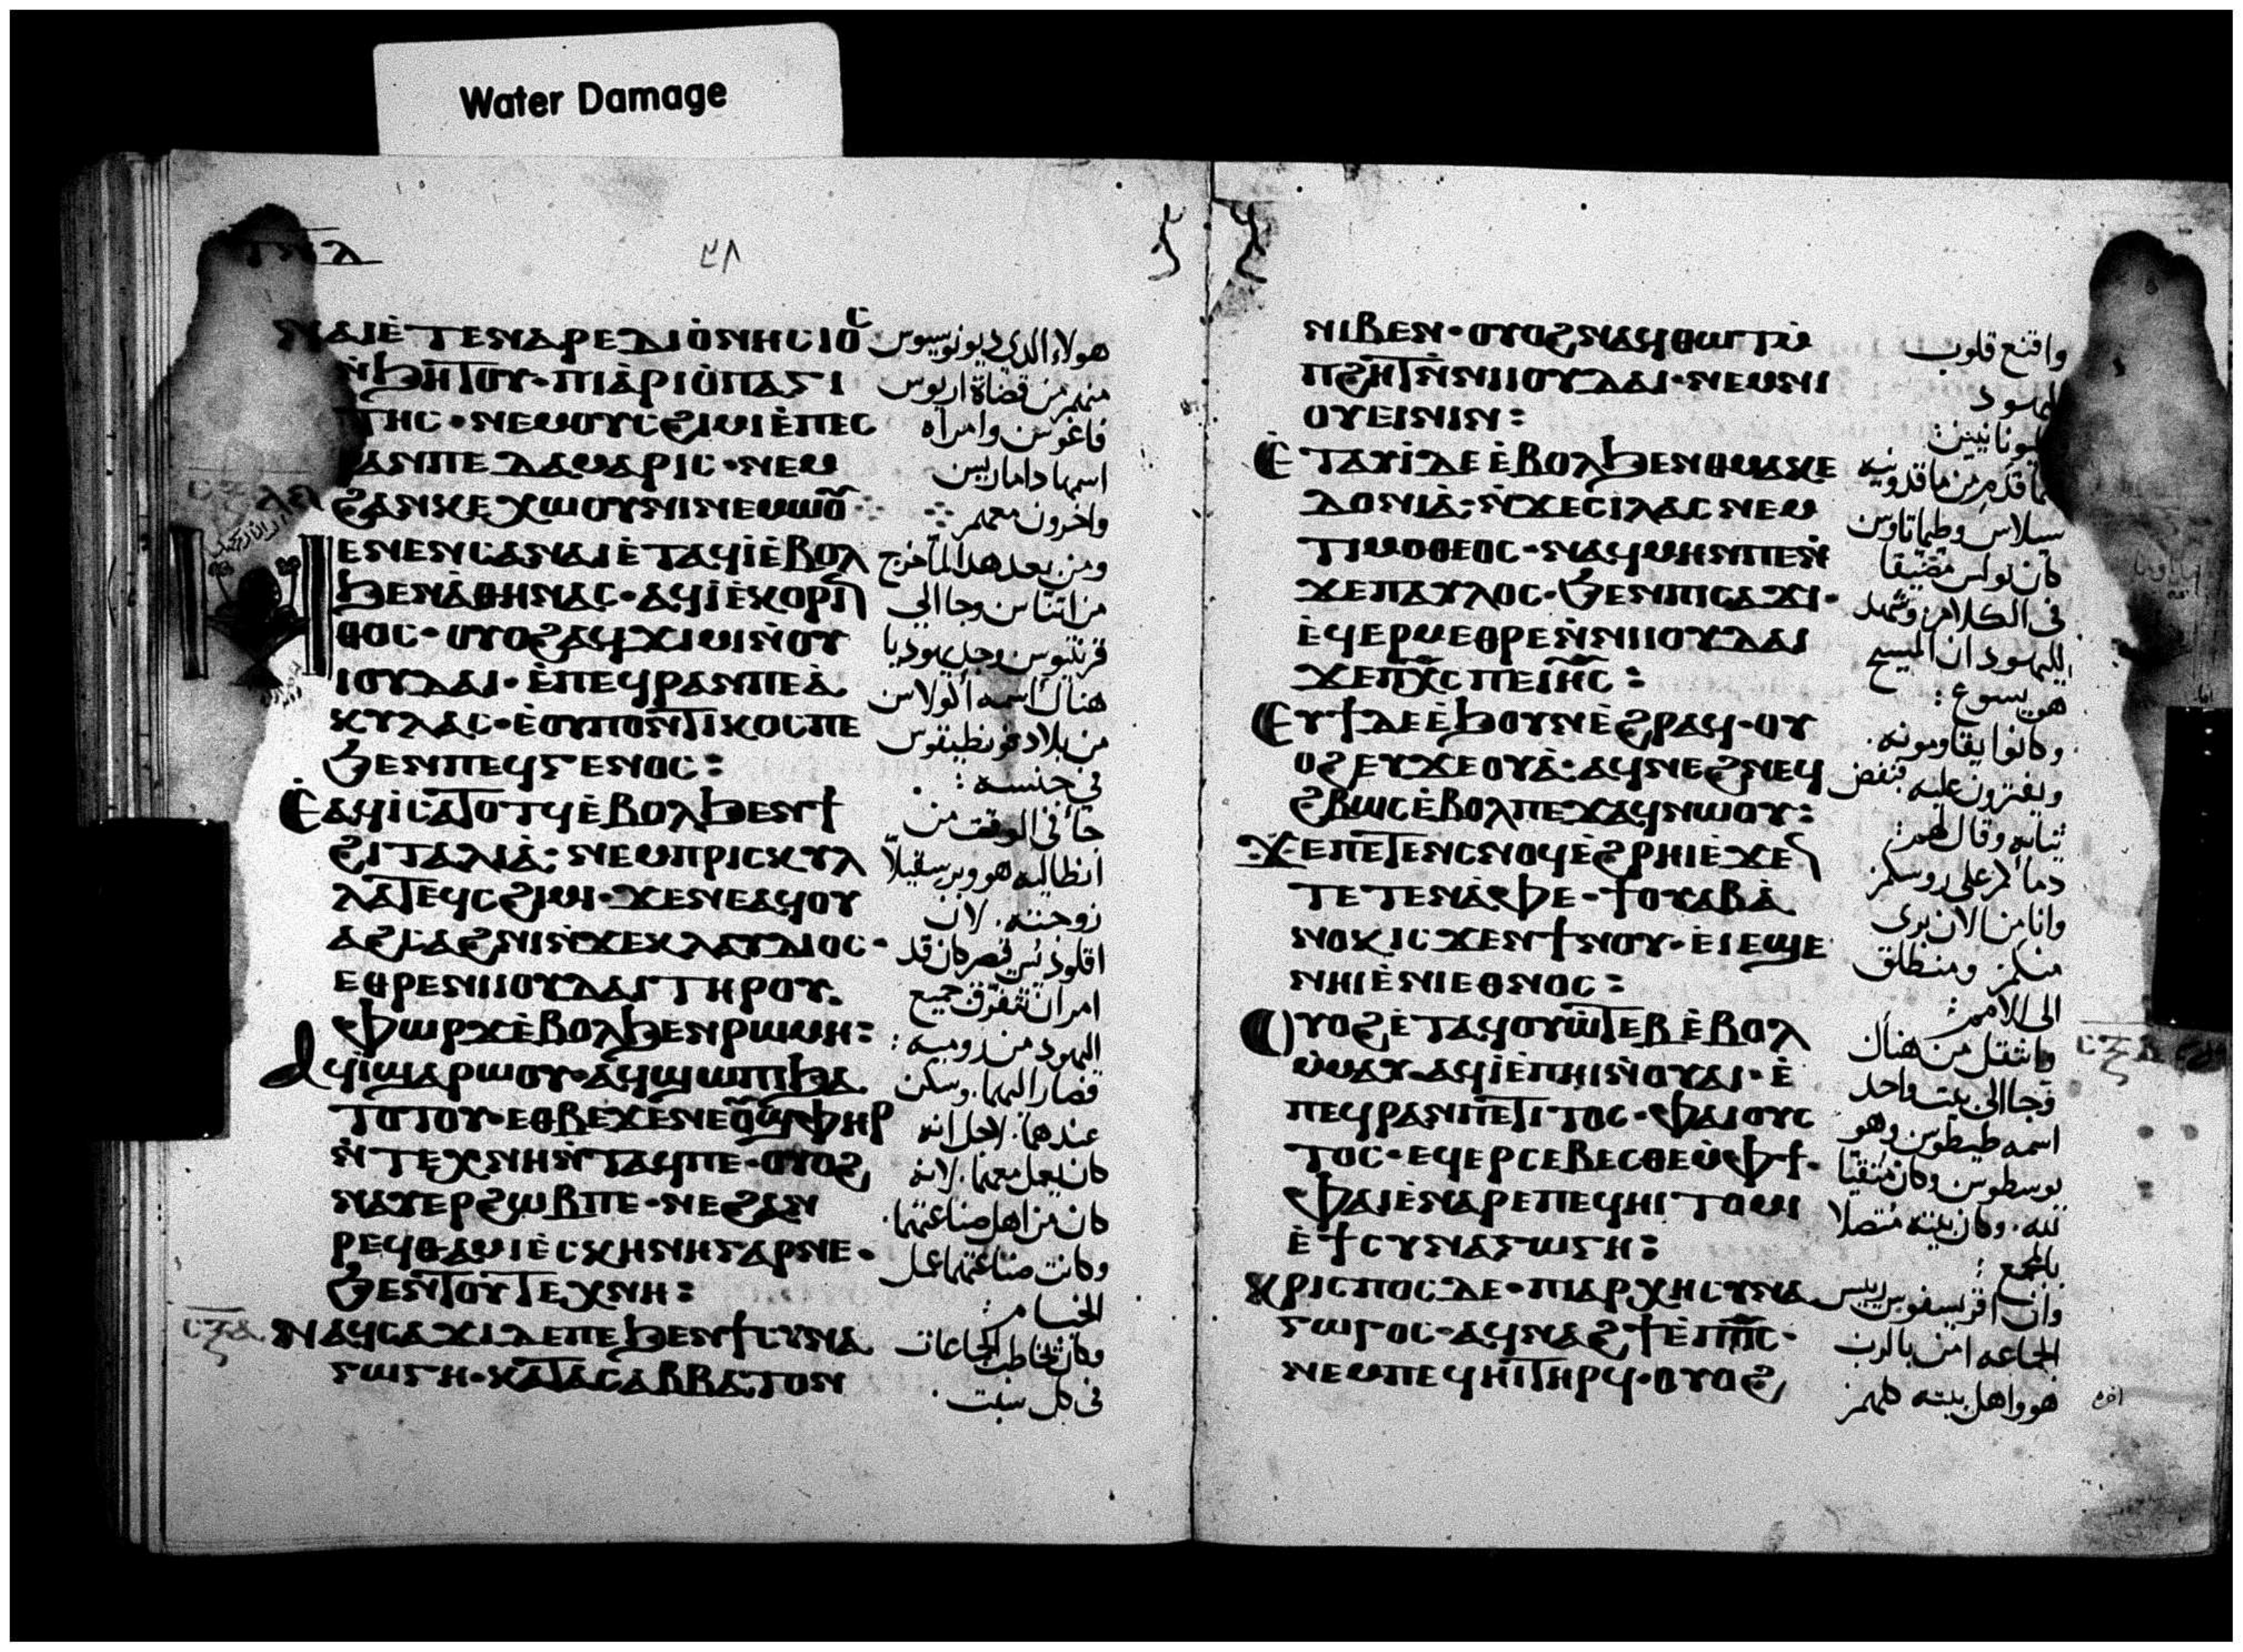 Water Damage
ⲛⲁⲓⲉ̀ⲧⲉⲛⲁⲣⲉⲇⲓⲟ̀ⲛⲏⲥⲓⲟⲥ
ⲛ̀ϧⲏⲧⲟⲩ·ⲡⲓⲁ̀ⲣⲓⲟ̀ⲡⲁⲅⲓ
ⲧⲏⲥ·ⲛⲉⲙⲟⲩⲥϩⲓⲙⲓⲉ̀ⲡⲉⲥ
ⲣⲁⲛⲡⲉⲇⲁⲙⲁⲣⲓⲥ·ⲛⲉⲙ
ϩⲁⲛⲕⲉⲭⲱⲟⲩⲛⲓⲛⲉⲙⲱⲟⲩ
ⲙⲉⲛⲉⲛⲥⲁⲛⲁⲓⲉ̀ⲧⲁϥⲓ̀ⲉ̀ⲃⲟⲗ
ϧⲉⲛⲁ̀ⲑⲏⲛⲁⲥ·ⲁϥⲓ̀ⲉ̀ⲕⲟⲣⲓⲛ
ⲑⲟⲥ·ⲟⲩⲟϩⲁϥϫⲓⲙⲓⲛ̀ⲟⲩ
ⲓⲟⲩⲇⲁⲓ·ⲉ̀ⲡⲉϥⲣⲁⲛⲡⲉⲁ̀
ⲕⲩⲗⲁⲥ·ⲉ̀ⲟⲩⲡⲟⲛⲧⲓⲕⲟⲥⲡⲉ
ϧⲉⲛⲡⲉϥⲅⲉⲛⲟⲥ:
ⲉ̀ⲁϥⲓ̀ⲥⲁⲧⲟⲧϥⲉ̀ⲃⲟⲗϧⲉⲛϯ
ϩⲓⲧⲁⲗⲓⲁ̀:ⲛⲉⲙⲡⲣⲓⲥⲕⲩⲗ
ⲗⲁⲧⲉϥⲥϩⲓⲙⲓ·ϫⲉⲛⲉⲁϥⲟⲩ
ⲁϩⲥⲁϩⲛⲓⲛ̀ϫⲉⲕⲗⲁⲩⲇⲓⲟⲥ·
ⲉⲑⲣⲉⲛⲓⲓⲟⲩⲇⲁⲓⲧⲏⲣⲟⲩ
ⲫⲱⲣϫⲉ̀ⲃⲟⲗϧⲉⲛⲣⲱⲙⲏ:
ⲁϥⲓ̀ϣⲁⲣⲱⲟⲩ·ⲁϥϣⲱⲡⲓϧⲁ
ⲧⲟⲧⲟⲩ·ⲉⲑⲃⲉϫⲉⲛⲉⲟⲩϣⲫⲏⲣ
ⲛ̀ⲧⲉⲭⲛⲏⲛ̀ⲧⲁϥⲡⲉ·ⲟⲩⲟϩ
ⲛⲁⲩⲉⲣϩⲱⲃⲡⲉ·ⲛⲉϩⲁⲛ
ⲣⲉϥⲑⲁⲙⲓⲉ̀ⲥⲕⲏⲛⲏⲅⲁⲣⲛⲉ·
ϧⲉⲛⲧⲟⲩⲧⲉⲭⲛⲏ:
ⲛⲁϥⲥⲁϫⲓⲇⲉⲡⲉϧⲉⲛϯⲥⲩⲛⲁ
ⲅⲱⲅⲏ·ⲕⲁⲧⲁⲥⲁⲃⲃⲁⲧⲟⲛ
هولاء الذي ديونوسيوس
منهم من قضاة اريوس
فاغوس وامراه
اسمها داماريس
واخرون معهم
ومن بعد هذا لما خرج
من اتناس وجا الي
قرنتيوس وجد يهوديا
هناك اسمه اكولاس
من بلاد فونطيقوس
في جنسه :
جا في الوقت من
انطاليه هو وبرسقيلا
زوجته . لان
اقلوذيس قيصر كان قد
امر ان تتفرق جميع
اليهود من روميه :
فصار اليهما . وسكن
عندهما . لاجل انه
كان يعمل معهما . لانه
كان من اهل صناعتهما .
وكانت صناعتهما عمل
الخيام :
وكان يخاطب الجماعات
في كل سبت .
ⲛⲓⲃⲉⲛ·ⲟⲩⲟϩⲛⲁϥⲑⲱⲧⲙ̀
ⲡϩⲏⲧⲛ̀ⲛⲓⲓⲟⲩⲇⲁⲓ·ⲛⲉⲙⲛⲓ
ⲟⲩⲉⲓⲛⲓⲛ:
ⲉ̀ⲧⲁⲩⲓ̀ⲇⲉⲉ̀ⲃⲟⲗϧⲉⲛⲑⲙⲁⲕⲉ
ⲇⲟⲛⲓⲁ̀:ⲛ̀ϫⲉⲥⲓⲗⲁⲥⲛⲉⲙ
ⲧⲓⲙⲟⲑⲉⲟⲥ·ⲛⲁϥⲙⲏⲛⲡⲉⲛ̀
ϫⲉⲡⲁⲩⲗⲟⲥ·ϧⲉⲛⲡⲓⲥⲁϫⲓ·
ⲉ̀ϥⲉⲣⲙⲉⲑⲣⲉⲛ̀ⲛⲓⲓⲟⲩⲇⲁⲓ
ϫⲉⲡⲭ̅ⲥ̅ⲡⲉⲓⲏ̅ⲥ̅:
ⲉⲩϯⲇⲉⲉ̀ϧⲟⲩⲛⲉ̀ϩⲣⲁϥ·ⲟⲩ
ⲟϩⲉⲩϫⲉⲟⲩⲁ̀·ⲁϥⲛⲉϩⲛⲉϥ
ϩⲃⲱⲥⲉ̀ⲃⲟⲗⲡⲉϫⲁϥⲛⲱⲟⲩ:
ϫⲉⲡⲉⲧⲉⲛⲥⲛⲟϥⲉ̀ϩⲣⲏⲓⲉ̀ϫⲉⲛ
ⲧⲉⲧⲉⲛⲁ̀ⲫⲉ·ϯⲟⲩⲁⲃⲁ̀
ⲛⲟⲕⲓⲥϫⲉⲛϯⲛⲟⲩ·ⲉⲓⲉϣⲉ
ⲛⲏⲓⲉ̀ⲛⲓⲉⲑⲛⲟⲥ:
ⲟⲩⲟϩⲉ̀ⲧⲁϥⲟⲩⲱ̀ⲧⲉⲃⲉ̀ⲃⲟⲗ
ⲙ̀ⲙⲁⲩ·ⲁϥⲓ̀ⲉ̀ⲡⲏⲓⲛ̀ⲟⲩⲁⲓ·ⲉ̀
ⲡⲉϥⲣⲁⲛⲡⲉⲧⲓⲧⲟⲥ·ⲫⲁⲓⲟⲩⲥ
ⲧⲟⲥ·ⲉϥⲉⲣⲥⲉⲃⲉⲥⲑⲉⲙ̀ⲫϯ·
ⲫⲁⲓⲉ̀ⲛⲁⲣⲉⲡⲉϥⲏⲓⲧⲟⲙⲓ
ⲉ̀ϯⲥⲩⲛⲁⲅⲱⲅⲏ:
ⲭⲣⲓⲥⲡⲟⲥⲇⲉ·ⲡⲓⲁⲣⲭⲏⲥⲩⲛⲁ
ⲅⲱⲅⲟⲥ·ⲁϥⲛⲁϩϯⲉ̀ⲡϭⲥ·
ⲛⲉⲙⲡⲉϥⲏⲓⲧⲏⲣϥ·ⲟⲩⲟϩ
واقنع قلوب
اليهود
واليونانيين :
لما قدم من ماقدونيه
سيلاس وطيماتاوس
كان بولس مضيقا
في الكلام ويشهد
لليهود ان المسيح
هو يسوع :
وكانوا يقاومونه .
ويفترون عليه فنفض
ثيابه وقال لهم :
دماكم على روسكم
وانا من الان برى
منكم ومنطلق
الى الامم :
وانتقل من هناك
وجا الى بيت واحد
اسمه طيطوس وهو
يوسطوس وكان متقيا
لله . وكان بيته متصلا
بالمجمع :
وان اقريسفوس رييس
الجماعه امن بالرب
هو واهل بيته كلهم